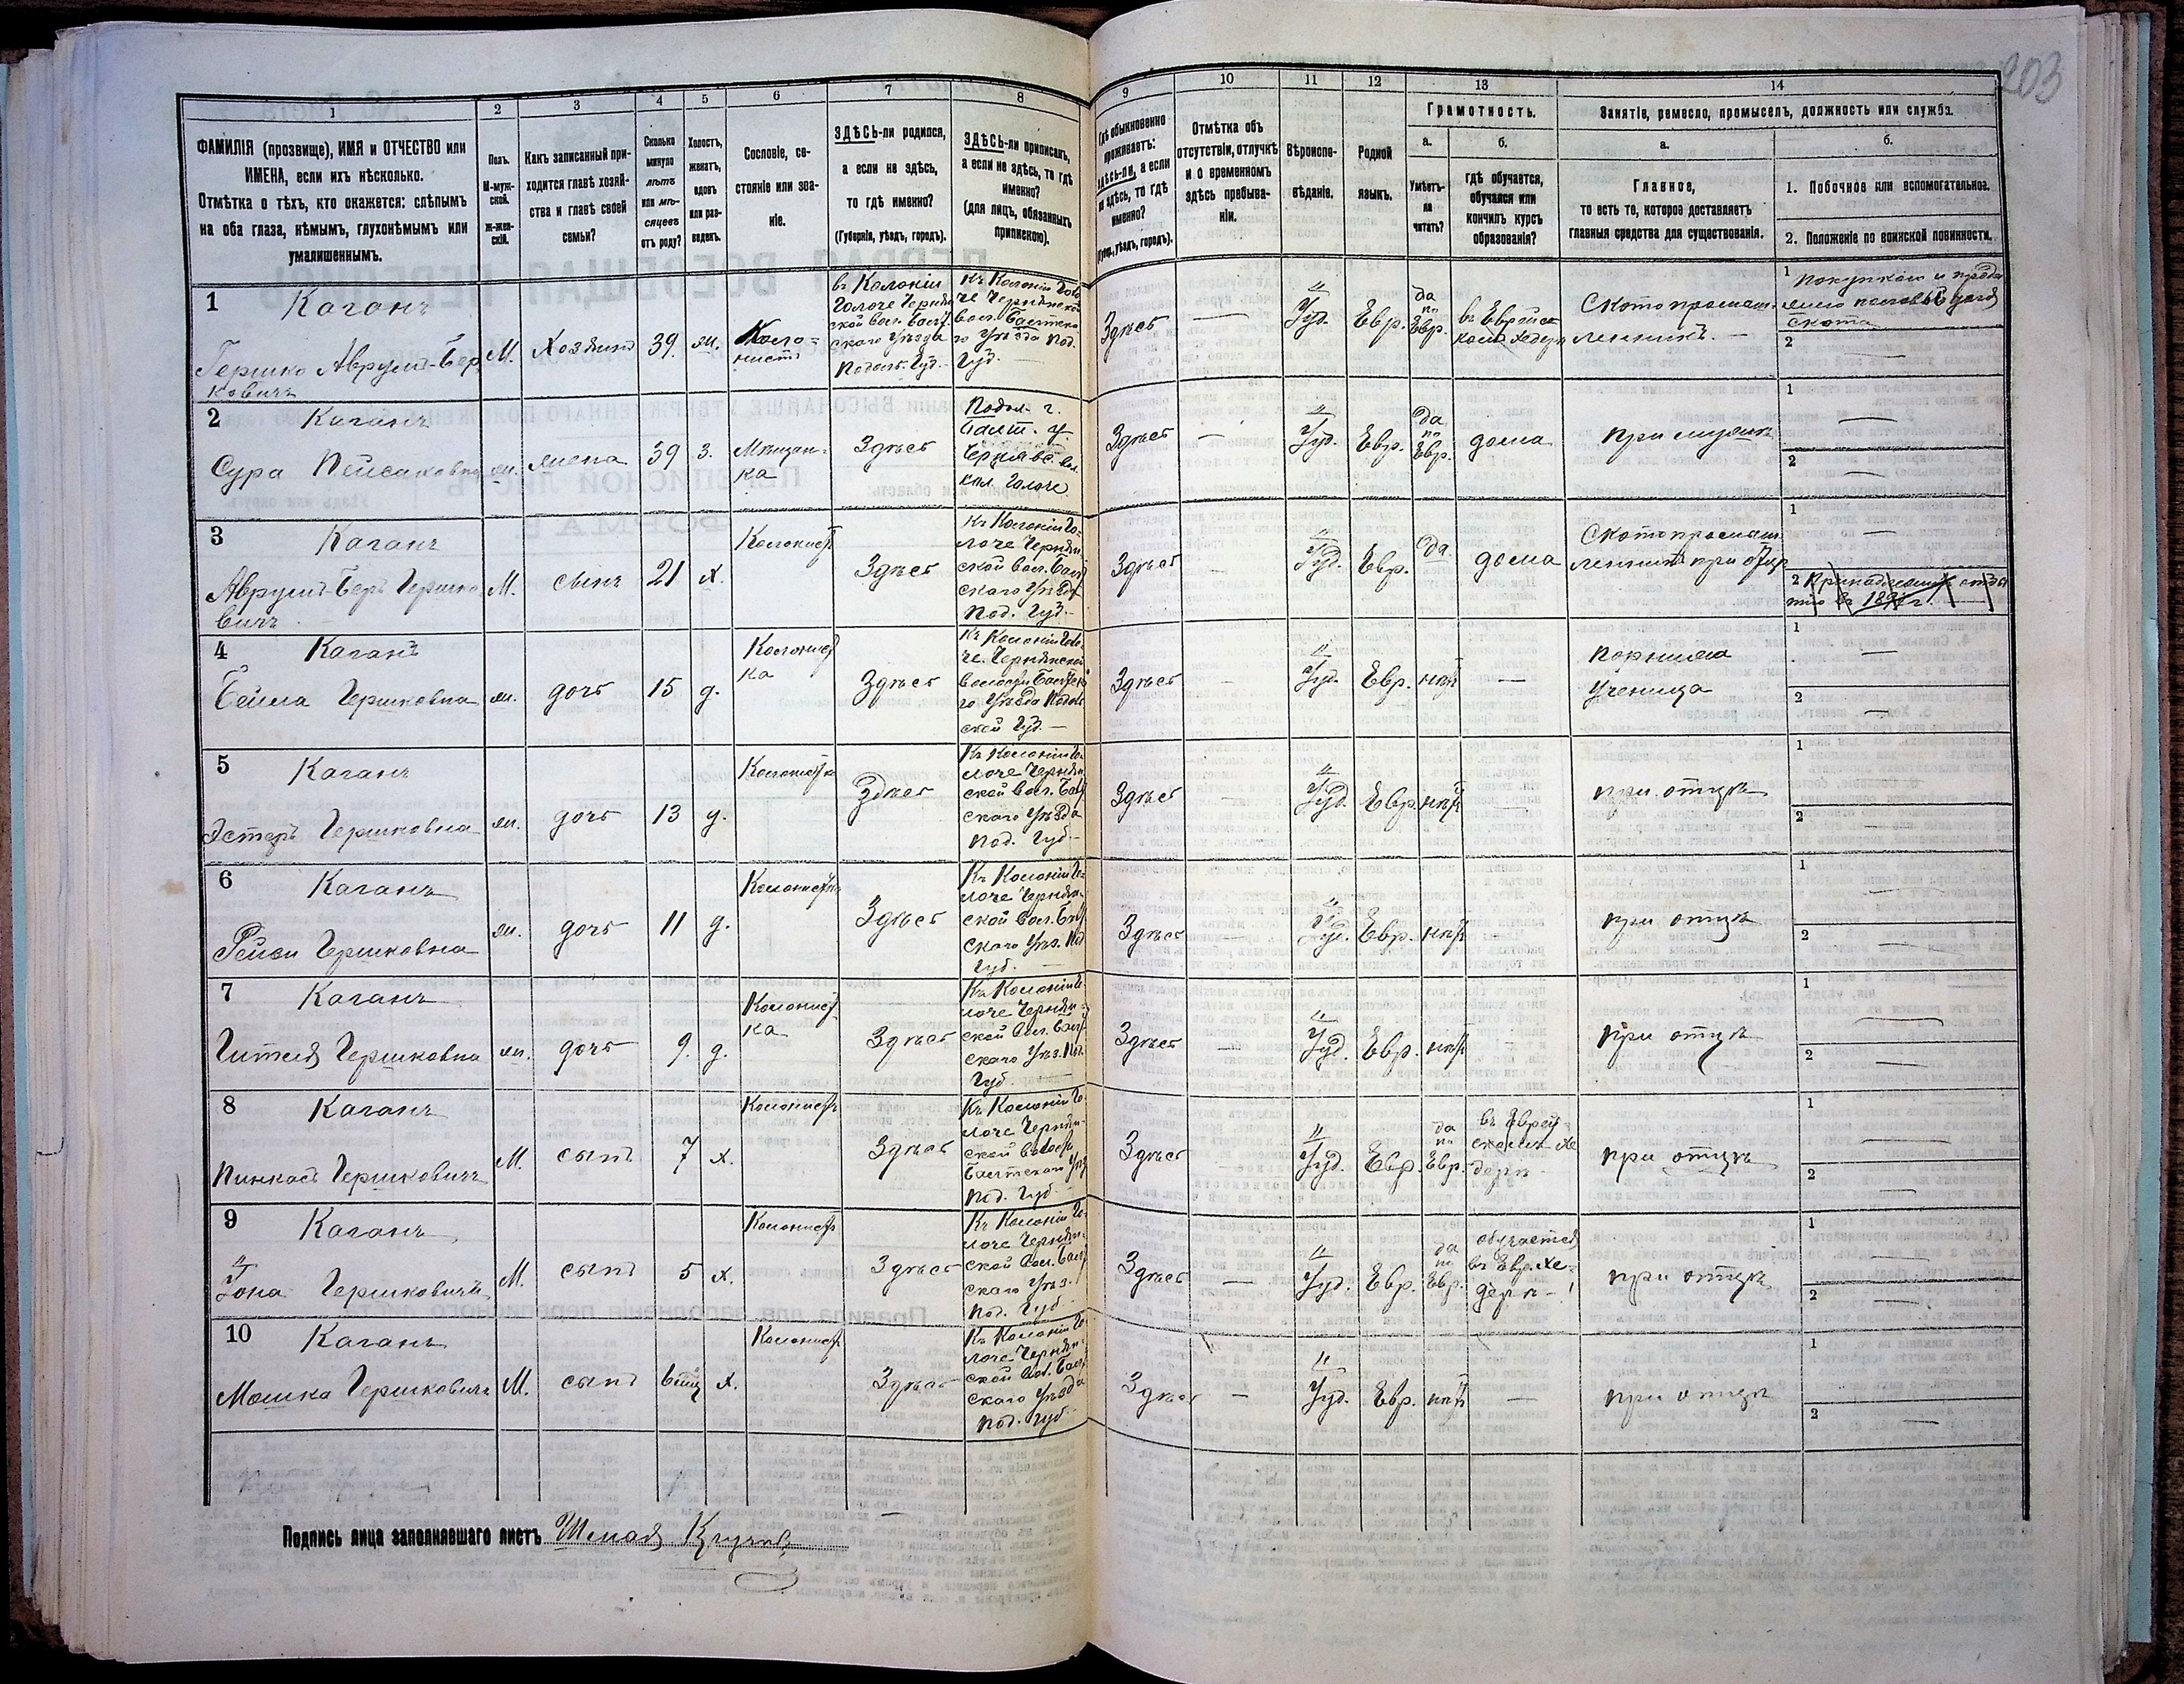 203
1 2 3 4 5 6 7 8 9 10 11 12 13 14
ФАМИЛІЯ (прозвище), ИМЯ и ОТЧЕСТВО или
ИМЕНА, если ихъ нѣсколько.
Отмѣтка о тѣхъ, кто окажется: слѣпымъ
на оба глаза, нѣмымъ, глухонѣмымъ или
умалишеннымъ.
Полъ.
М-муж-
ской.
ж-жен-
скій.
Какъ записанный при-
ходится главѣ хозяй-
ства и главѣ своей
семьи?
Сколько
минуло
лѣтъ
или мѣ-
сяцевъ
отъ роду?
Холостъ,
женатъ,
вдовъ
или раз-
веденъ.
Сословіе, со-
стояніе или зва-
ніе.
ЗДѢСЬ-ли родился,
а если не здѣсь,
то гдѣ именно?
(Губернія, уѣздъ, городъ).
ЗДѢСЬ-ли приписанъ,
а если не здѣсь, то гдѣ
именно?
(для лицъ, обязанныхъ
припискою).
Гдѣ обыкновенно
проживаетъ:
здѣсь-ли, а если
не здѣсь, то гдѣ
именно?
(Губер., уѣздъ, городъ).
Отмѣтка объ
отсутствіи, отлучкѣ
и о временномъ
здѣсь пребыва-
ніи.
Вѣроиспо-
вѣданіе.
Родной
языкъ.
Грамотность.
а.
Умѣетъ-
ли
читать?
б.
гдѣ обучается,
обучался или
кончилъ курсъ
образованія?
Занятіе, ремесло, промыселъ, должность или служба.
а.
Главное,
то есть то, которое доставляетъ
главныя средства для существованія.
б.
1. Побочное или вспомогательное.
2. Положеніе по воинской повинности.
1 Каганъ
Гершко Аврумъ-Бер
ковичъ
М. Хозяинъ 39. ж. Коло-
нистъ
въ Колоніи
Голоче Чернян
ской вол. Балт
скаго Уѣзда
Подольс. Губ.
Къ Колоніи Голо
че Чернянской
вол. Балтска
го Уѣзда Под.
Губ.
Здѣсь — Іуд. Евр. да
по
Евр.
въ Еврейс
комъ Хедерѣ
Скотопромыш
ленникъ. —
1
скота
2 —
2 Каганъ
Сура Пейсаховна ж. жена 39 з. Мѣщан-
ка
Здѣсь
Подол. г.
Балт. у.
Чернявс. вол.
кол. Голоче
Здѣсь — Іуд. Евр. да
по
Евр.
дома
при мужѣ
1 —
2 —
3 Каганъ
Аврумъ-Беръ Гершко
вичъ
М. сынъ 21 х. Колонистъ
Здѣсь
Къ Колоніи Го-
лоче Чернян
ской вол. Балт
скаго Уѣзда
Под. Губ.
Здѣсь Іуд. Евр. да дома
Скотопромыш
ленникъ при отцѣ
1 —
2
4 Каганъ
Бейла Гершковна ж. дочь 15 д. Колонист
ка
Здѣсь
Къ Колоніи Голо
че Чернянской
волости Балтска
го Уѣзда Подоль
ской Губ. —
Здѣсь — Іуд. Евр. нѣтъ —
портняжа
Ученица
1 —
2 —
5 Каганъ
Эстеръ Гершковна ж. дочь 13 д. Колонистка
Здѣсь
Къ Колоніи Го-
лоче Чернян
ской вол. Балт
скаго Уѣзда
Под. Губ. —
Здѣсь — Іуд. Евр. нѣтъ —
при отцѣ
1 —
2 —
6 Каганъ
Рейзи Гершковна ж. дочь 11 д. Колонистка
Здѣсь
Къ Колоніи Го-
лоче Чернян-
ской вол. Балт
скаго Уѣз. Под
Губ. —
Здѣсь — Іуд. Евр. нѣтъ
при отцѣ
1 —
2 —
7 Каганъ
Гитля Гершковна ж. дочь 9. д. Колонист
ка
Здѣсь
Къ Колоніи Го
лоче Чернян-
ской вол. Балт
скаго Уѣз. Под.
Губ. —
Здѣсь — Іуд. Евр. нѣтъ -
при отцѣ
1 —
2 —
8 Каганъ
Пинкасъ Гершковичъ М. сынъ 7 х. Колонистъ
Здѣсь
Къ Колоніи Го
лоче Чернян-
ской волости
Балтскаго Уѣз
Под. Губ. —
Здѣсь — Іуд. Евр. да
по
Евр.
въ Еврей-
скомъ Хе
дерѣ
при отцѣ
1 —
2 —
9 Каганъ
Іона Гершковичъ М. сынъ 5 х. Колонистъ
Здѣсь
Къ Колоніи Го-
лоче Чернян-
ской вол. Балт
скаго Уѣз.
Под. Губ —
Здѣсь — Іуд. Евр. да
по
Евр.
обучается
въ Евр. Хе-
дерѣ -
при отцѣ
1 —
2 —
10 Каганъ
Мошка Гершковичъ М. сынъ х. Колонистъ
Здѣсь
Къ Колоніи Го-
лоче Чернян-
ской вол. Балт
скаго Уѣзда
Под. Губ. —
Здѣсь — Іуд. Евр. нѣтъ —
при отцѣ
1 —
2 —
Подпись лица заполнявшаго листъ Шмая